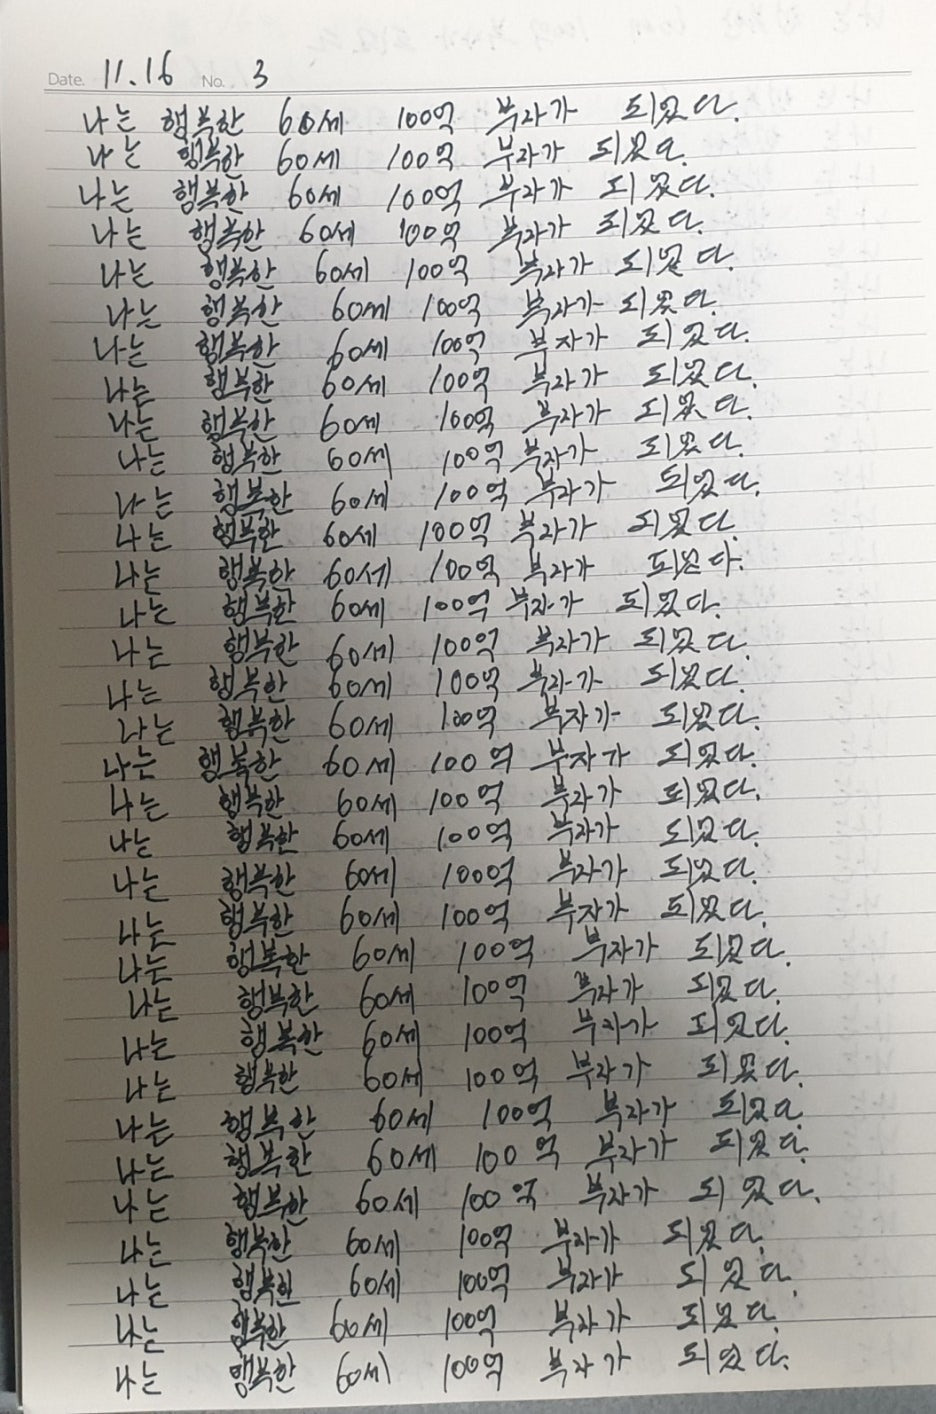 Date. 11.16 No. 3
나는 행복한 60세 100억 부자가 되었다.
나는 행복한 60세 100억 부자가 되었다.
나는 행복한 60세 100억 부자가 되었다.
나는 행복한 60세 100억 부자가 되었다.
나는 행복한 60세 100억 부자가 되었다.
나는 행복한 60세 100억 부자가 되었다.
나는 행복한 60세 100억 부자가 되었다.
나는 행복한 60세 100억 부자가 되었다.
나는 행복한 60세 100억 부자가 되었다.
나는 행복한 60세 100억 부자가 되었다.
나는 행복한 60세 100억 부자가 되었다.
나는 행복한 60세 100억 부자가 되었다.
나는 행복한 60세 100억 부자가 되었다.
나는 행복한 60세 100억 부자가 되었다.
나는 행복한 60세 100억 부자가 되었다.
나는 행복한 60세 100억 부자가 되었다.
나는 행복한 60세 100억 부자가 되었다.
나는 행복한 60세 100억 부자가 되었다.
나는 행복한 60세 100억 부자가 되었다.
나는 행복한 60세 100억 부자가 되었다.
나는 행복한 60세 100억 부자가 되었다.
나는 행복한 60세 100억 부자가 되었다.
나는 행복한 60세 100억 부자가 되었다.
나는 행복한 60세 100억 부자가 되었다.
나는 행복한 60세 100억 부자가 되었다.
나는 행복한 60세 100억 부자가 되었다.
나는 행복한 60세 100억 부자가 되었다.
나는 행복한 60세 100억 부자가 되었다.
나는 행복한 60세 100억 부자가 되었다.
나는 행복한 60세 100억 부자가 되었다.
나는 행복한 60세 100억 부자가 되었다.
나는 행복한 60세 100억 부자가 되었다.
나는 행복한 60세 100억 부자가 되었다.